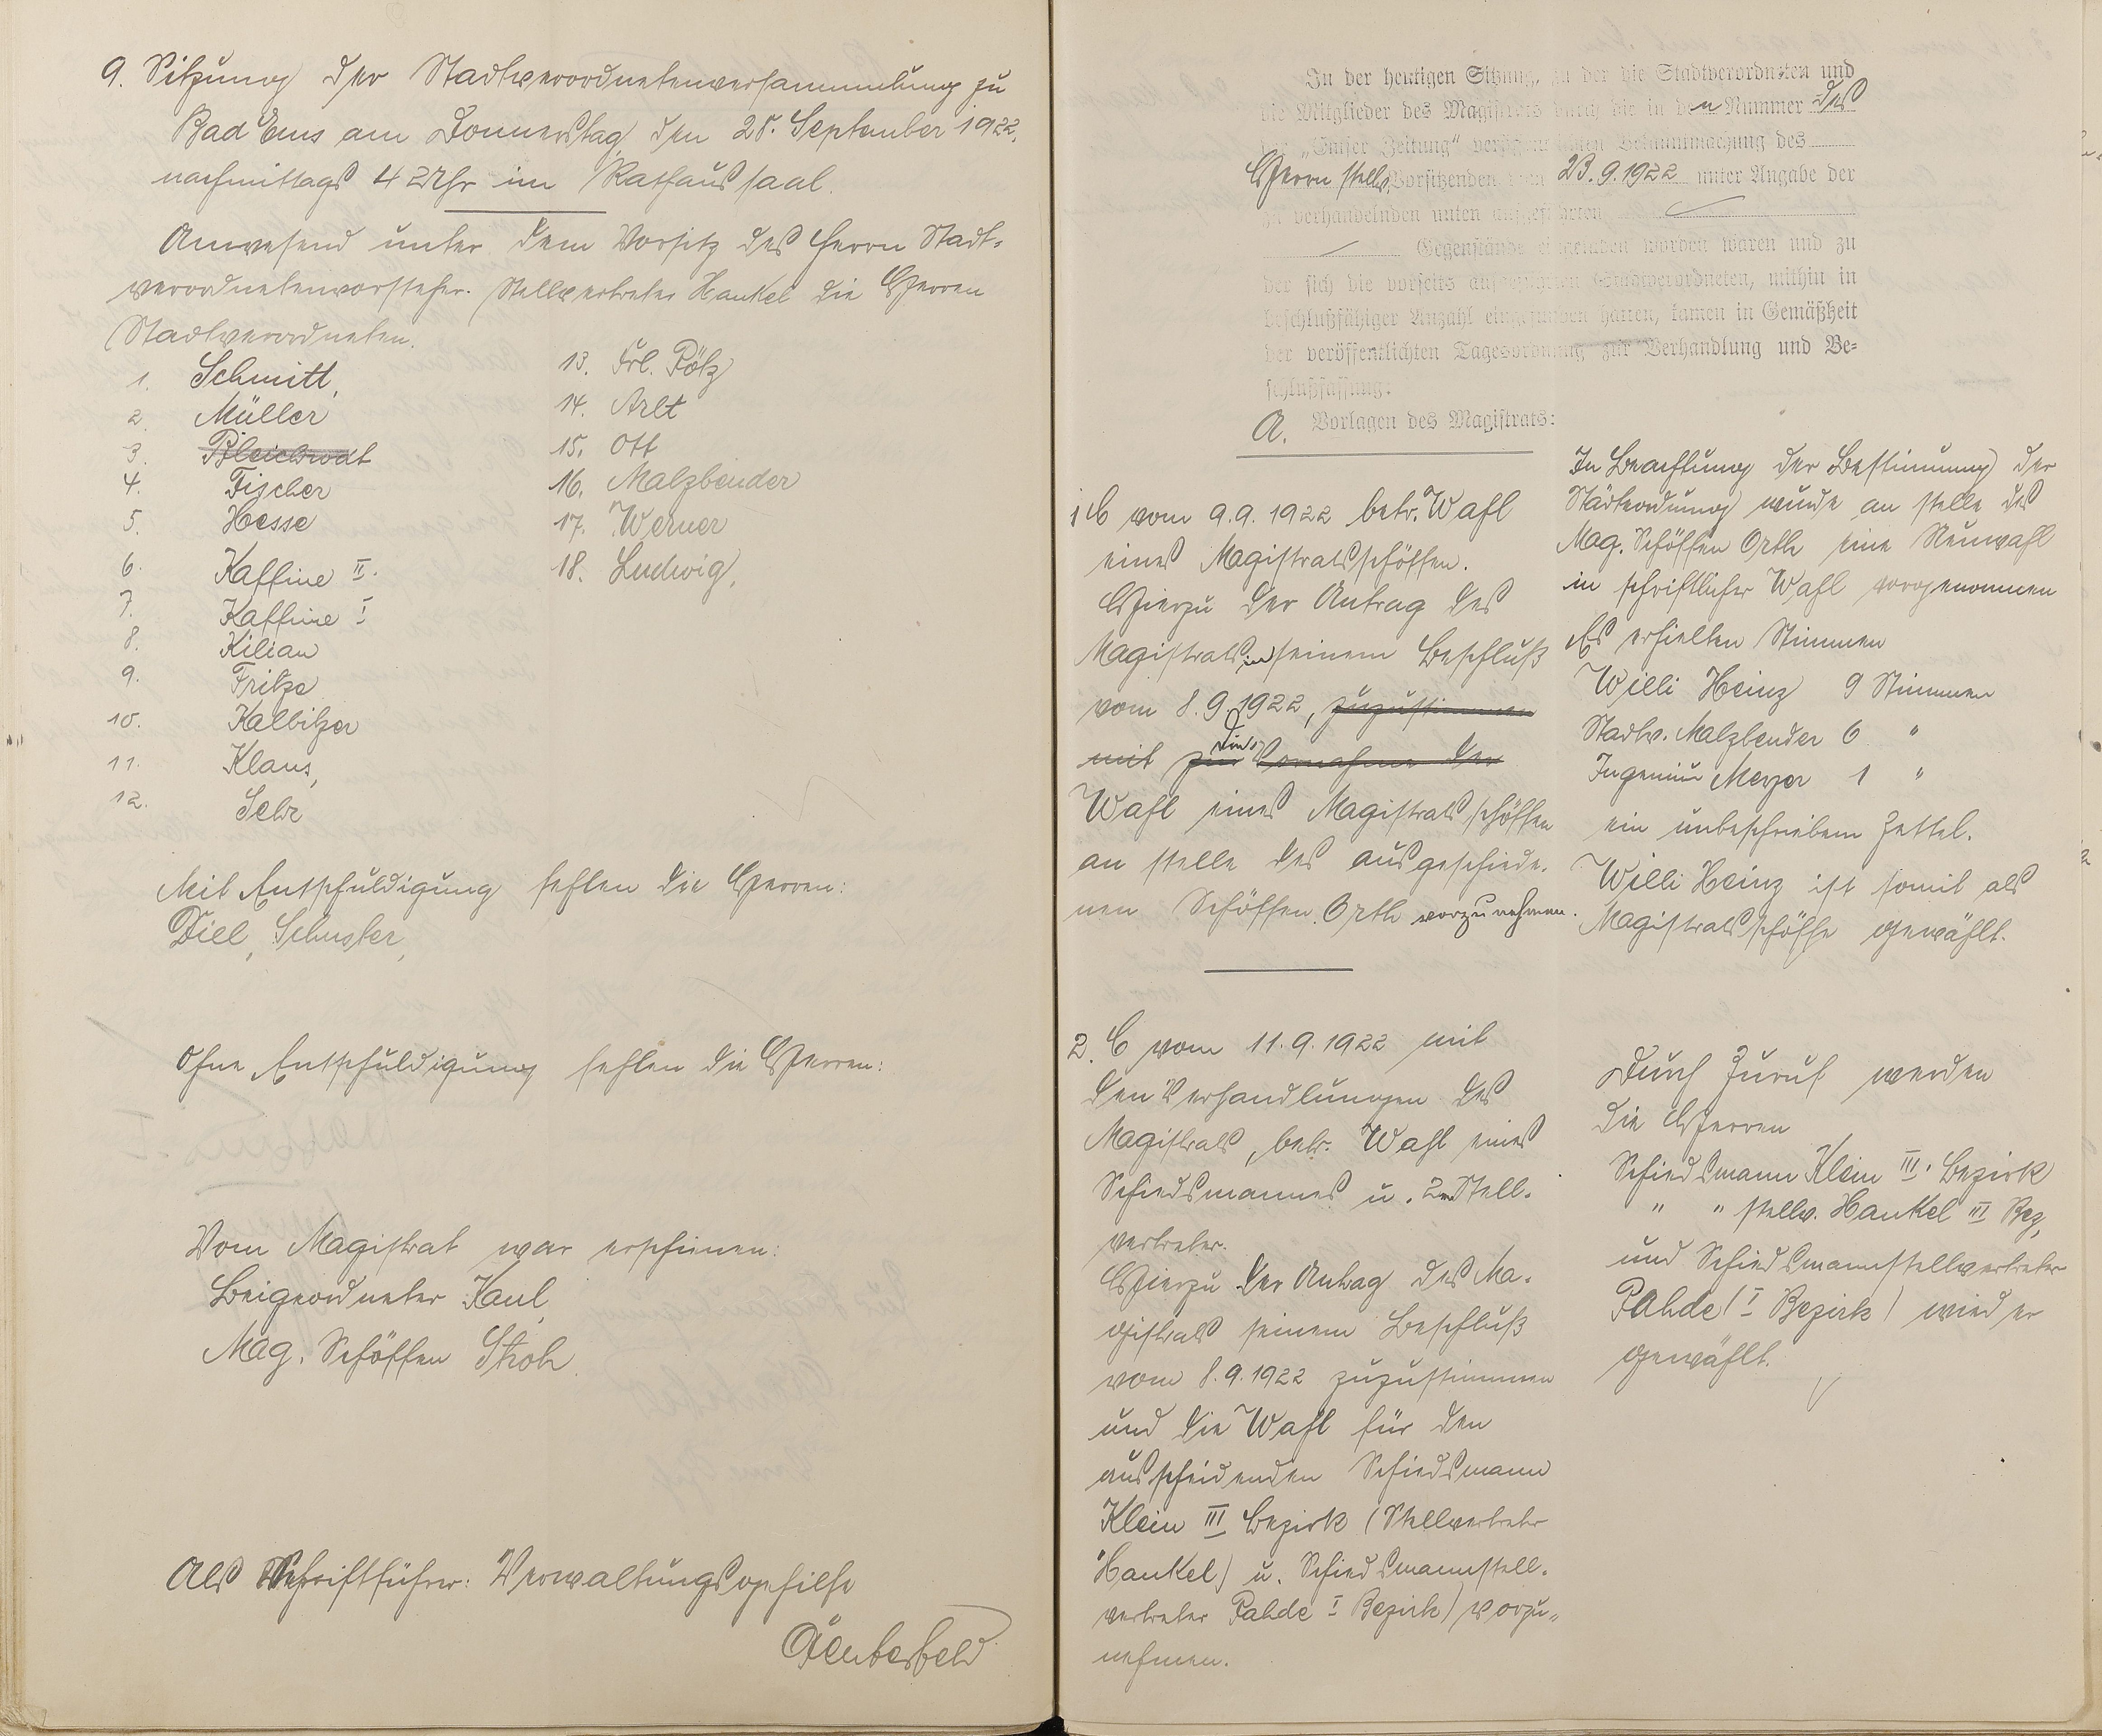 9. Sitzung der Stadtverordnetenversammlung zu
Bad Ems am Donnerstag, den 28. September 1922,
nachmittags 4 Uhr im Rathaussaal.
Anwesend unter dem Vorsitz des Herrn Stadt-
verordnetenvorsteher-Stellvertreter Hankel die Herren
Stadtverordneten.
1. Schmitt,
2. Müller
3.
4. Fischer
5. Hesse
6. Kaffine II.
7. Kaffine I
8. Kilian
9. Fritze
10. Kalbitzer
11. Klaus,
12. Sehr
13. Frl. Pötz
14. Arlt
15. Ott
16. Malzbender
17. Werner
18. Ludwig,
Mit Entschuldigung fehlen die Herren:
Diel, Schuster,
Ohne Entschuldigung fehlen die Herren:
Vom Magistrat war erschienen:
Beigeordneter Kaul,
Mag. Schöffen Stroh.
Als Schriftführer: Verwaltungsgehilfe
In der heutigen Sitzung, zu der die Stadtverordneten und
die Mitglieder des Magistrats durch die in den Nummer des
der „Emser Zeitung“ Bekanntmachung des
Herrn stellv. Vorsitzenden vom 23.9.1922 unter Angabe der
zu verhandelnden unten aufgeführten
Gegenstände worden waren und zu
der sich die vorseits Stadtverordneten, mithin in
beschlußfähiger Anzahl eingefunden hatten, kamen in Gemäßheit
der veröffentlichten Tagesordnung zur Verhandlung und Be-
schlußfassung:
A. Vorlagen des Magistrats:
1 C vom 9.9.1922 betr. Wahl
eines Magistratsschöffen.
Hierzu der Antrag des
Magistrats, in seinem Beschluß
vom 8.9.1922, zuzustimmen
mit zur die Vornahme der
Wahl eines Magistratsschöffen
an stelle des ausgeschiede-
nen Schöffen Orth vorzunehmen.
In Beachtung der Bestimmung der
Städteordnung wurde an stelle des
Mag. Schöffen Orth eine Neuwahl
in schriftlicher Wahl vorgenommen
Es erhielten Stimmen
Willi Heinz 9 Stimmen
Stadtv. Malzbender 6 "
Ingenieur Meyer 1 "
ein unbeschriebenn Zettel.
Willi Heinz ist somit als
Magistratsschöffe gewählt.
2. C vom 11.9.1922 mit
den Verhandlungen des
Magistrats, betr. Wahl eines
Schiedsmannes u. 2 Stell-
vertreter.
Hierzu der Antrag des Ma-
gistrats seinem Beschluß
vom 8.9.1922 zuzustimmen
und die Wahl für den
ausscheidenden Schiedsmann
Klein III Bezirk (Stellvertreter
Hankel) u. Schiedsmannstell-
vertreter Pahde I Bezirk) vorzu-
nehmen.
Durch Zuruf werden
die Herren
Schiedsmann Klein III. Bezirk
" " stellv. Hankel III Bez,
und Schiedsmannstellvertreter
Pahde (I Bezirk) wieder
gewählt.